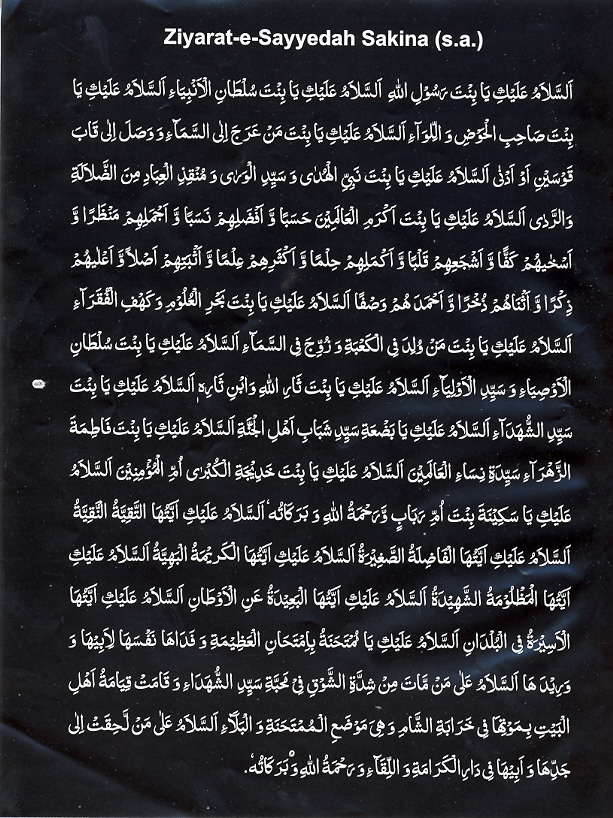 Ziyarat-e-Sayyedah Sakina (s.a.)
اَلسَّلَامُ عَلَيْكِ يَا بِنْتَ رَسُوْلِ اللهِ اَلسَّلَامُ عَلَيْكِ يَا بِنْتَ سُلْطَانِ الْاَنْبِيَاءِ اَلسَّلَامُ عَلَيْكِ يَا
بِنْتَ صَاحِبِ الْحَوْضِ وَ اللِّوَآءِ اَلسَّلَامُ عَلَيْكِ يَا بِنْتَ مَنْ عَرَجَ اِلَى السَّمَآءِ وَ وَصَلَ اِلٰى قَابَ
قَوْسَيْنِ اَوْ اَدْنٰى اَلسَّلَامُ عَلَيْكِ يَا بِنْتَ نَبِيِّ الْهُدٰى وَ سَيِّدِ الْوَرٰى وَ مُنْقِذِ الْعِبَادِ مِنَ الضَّلَالَةِ
وَالرَّدٰى اَلسَّلَامُ عَلَيْكِ يَا بِنْتَ اَكْرَمِ الْعَالَمِيْنَ حَسَبًا وَّ اَفْضَلِهِمْ نَسَبًا وَّ اَجْمَلِهِمْ مَنْظَرًا وَّ
اَسْخٰيهُمْ كَفًّا وَّ اَشْجَعِهِمْ قَلْبًا وَّ اَكْمَلِهِمْ حِلْمًا وَّ اَكْثَرِهِمْ عِلْمًا وَّ اَثْبَتِهِمْ اَصْلًا وَّ اَعْلٰيهُمْ
ذِكْرًا وَّ اَثْنَاهُمْ ذُخْرًا وَّ اَحْمَدَ هُمْ وَصْفًا اَلسَّلَامُ عَلَيْكِ يَا بِنْتَ بَحْرِ الْعُلُوْمِ وَ كَهْفِ الْفُقَرَآءِ
اَلسَّلَامُ عَلَيْكِ يَا بِنْتَ مَنْ وُلِدَ فِى الْكَعْبَةِ وَ زُوِّجَ فِى السَّمَآءِ اَلسَّلَامُ عَلَيْكِ يَا بِنْتَ سُلْطَانِ
الْاَوْصِيَاءِ وَ سَيِّدِ الْاَوْلِيَآءِ اَلسَّلَامُ عَلَيْكِ يَا بِنْتَ ثَارِ اللهِ وَابْنِ ثَارِهٖ اَلسَّلَامُ عَلَيْكِ يَا بِنْتَ
سَيِّدِ الشُّهَدَآءِ اَلسَّلَامُ عَلَيْكِ يَا بَضْعَةَ سَيِّدِ شَبَابِ اَهْلِ الْجَنَّةِ اَلسَّلَامُ عَلَيْكِ يَا بِنْتَ فَاطِمَةَ
الزَّهْرَآءِ سَيِّدَةِ نِسَاءِ الْعَالَمِيْنَ اَلسَّلَامُ عَلَيْكِ يَا بِنْتَ خَدِيْجَةِ الْكُبْرٰى اُمِّ الْمُؤْمِنِيْنَ اَلسَّلَامُ
عَلَيْكِ يَا سَكِيْنَةَ بِنْتَ اُمِّ رَبَابٍ وَّرَحْمَةُ اللهِ وَ بَرَكَاتُهٗ اَلسَّلَامُ عَلَيْكِ اَيَّتُهَا التَّقِيَّةُ النَّقِيَّةُ
اَلسَّلَامُ عَلَيْكِ اَيَّتُهَا الْفَاضِلَةُ الصَّغِيْرَةُ اَلسَّلَامُ عَلَيْكِ اَيَّتُهَا الْكَرِيْمَةُ الْبَهِيَّةُ اَلسَّلَامُ عَلَيْكِ
اَيَّتُهَا الْمَظْلُوْمَةُ الشَّهِيْدَةُ اَلسَّلَامُ عَلَيْكِ اَيَّتُهَا الْبَعِيْدَةُ عَنِ الْاَوْطَانِ اَلسَّلَامُ عَلَيْكِ اَيَّتُهَا
الْاَسِيْرَةُ فِى الْبُلْدَانِ اَلسَّلَامُ عَلَيْكِ يَا مُمْتَحَنَةُ بِامْتِحَانِ الْعَظِيْمَةِ وَ فَدَاهَا نَفْسَهَا لِاَبِيْهَا وَ
وَرِيْدَهَا اَلسَّلَامُ عَلٰى مَنْ مَّاتَ مِنْ شِدَّةِ الشَّوْقِ فِىْ مَحَبَّةِ سَيِّدِ الشُّهَدَاءِ وَ قَامَتْ قِيَامَةُ اَهْلِ
الْبَيْتِ بِمَوْتِهَا فِىْ خَرَابَةِ الشَّامِ وَ هِىَ مَوْضَعِ الْمُمْتَحَنَةِ وَ الْبَلَآءِ اَلسَّلَامُ عَلٰى مَنْ لَّحِقَتْ اِلٰى
جَدِّهَا وَ اَبِيْهَا فِىْ دَارِ الْكَرَامَةِ وَ اللِّقَآءِ وَ رَحْمَةُ اللهِ وَ بَرَكَاتُهٗ.